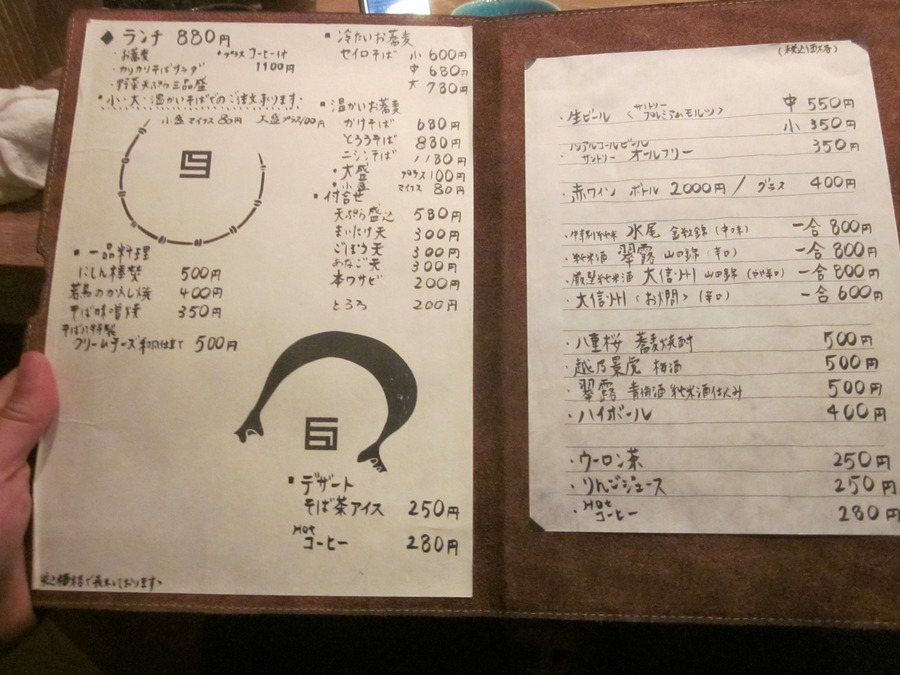 ◆ランチ 880円
・お蕎麦 ・プラス コーヒー付
・カリカリそばサラダ 1100円
・野菜天ぷら三品盛
・小・大・温かいそばでのご注文承ります。
小盛マイナス80円 大盛プラス100円
■一品料理
にしん棒煮 500円
若鳥のかえし焼 400円
そば味噌焼 350円
クリームチーズ和風仕立て 500円
■冷たいお蕎麦
セイロそば 小 600円
中 680円
大 780円
■温かいお蕎麦
かけそば 680円
とろろそば 880円
ニシンそば 1180円
・大盛 プラス100円
・小盛 マイナス 80円
■付合せ
天ぷら盛込 580円
まいたけ天 300円
ごぼう天 300円
あなご天 300円
本ワサビ 200円
とろろ 200円
■デザート
そば茶アイス 250円
Hot
コーヒー 280円
(税込価格)
・生ビール 〈サントリー プレミアムモルツ〉 中 550円
小 350円
ノンアルコールビール
・サントリー オールフリー 350円
・赤ワイン ボトル 2000円 / グラス 400円
・特別純米 水尾 金紋錦 (中口) 一合 800円
・純米酒 翠露 山田錦 (辛口) 一合 800円
・厳選純米酒 大信州 山田錦 (やや辛口) 一合 800円
・大信州 〈お燗〉 (辛口) 一合 600円
・八重桜 蕎麦焼酎 500円
・越乃景虎 梅酒 500円
・翠露 青梅酒 純米酒仕込み 500円
・ハイボール 400円
・ウーロン茶 250円
・りんごジュース 250円
・Hot
コーヒー 280円